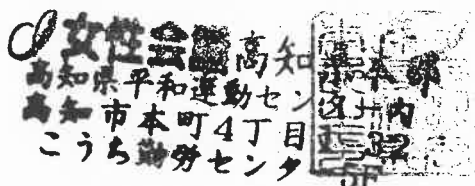 女性会議高知県本部
高知県平和運動センター内
高知市本町4丁目 32
こうち勤労センター